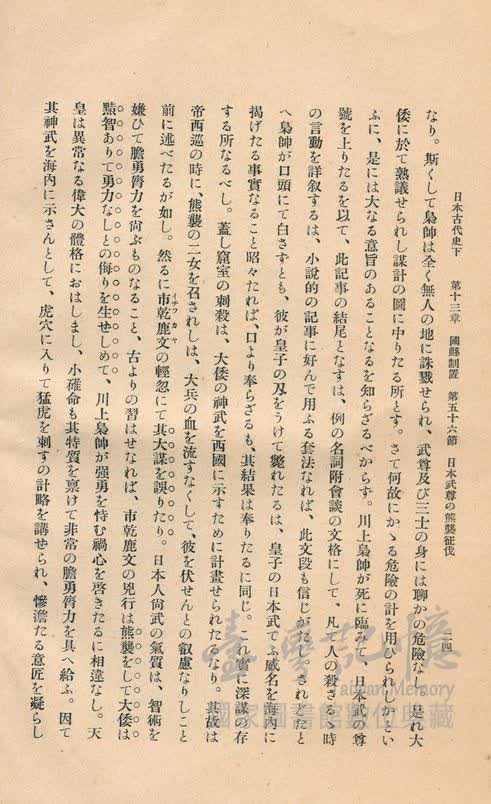 日本古代史下　第十三章　國縣制置　第五十六節　日本武尊の熊襲征伐　二四
なり。斯くして梟帥は全く無人の地に誅戮せられ、武尊及び三士の身には聊かの危險なし、是れ大
倭に於て熟議せられし謀計の圖に中りたる所とす。さて何故にかゝる危險の計を用ひられしかとい
ふに、是には大なる意旨のあることなるを知らざるべからず。川上梟帥が死に臨みて、日本武の尊
號を上りたるを以て、此記事の結尾となすは、例の名詞附會談の文格にして、凡て人の殺さるゝ時
の言動を詳叙するは、小說的の記事に好んで用ふる套法なれば、此文段も信じがたし。されどたと
へ梟帥が口頭にて白さずとも、彼が皇子の刄をうけて斃れたるは、皇子の日本武てふ威名を海內に
揚げたる事實なること昭々たれば、口より奉らざるも、其結果は奉りたるに同じ。これ實に深謀の存
する所なるべし。蓋し窟室の刺殺は、大倭の神武を西國に示すために計畫せられたるなり。其故は
帝西巡の時に、熊襲の二女を召されしは、大兵の血を流すなくして、彼を伏せんとの叡慮なりしこと
前に述べたるが如し。然るに市乾鹿文の輕忽にて其大謀を誤りたり。日本人尙武の氣質は、智術を
イチフカヤ
嫌ひて膽勇膂力を尙ぶものなること、古よりの習はせなれば、市乾鹿文の兇行は熊襲をして大倭は
黠智ありて勇力なしとの侮りを生ぜしめて、川上梟帥が强勇を恃む禍心を啓きたるに相違なし。天
皇は異常なる偉大の體格におはしまし、小碓命も其特質を禀けて非常の膽勇膂力を具へ給ふ。因て
其神武を海內に示さんとして、虎穴に入りて猛虎を刺すの計略を講ぜられ、慘澹たる意匠を凝らし
臺灣記憶
Taiwan Memory
國家圖書館數位典藏